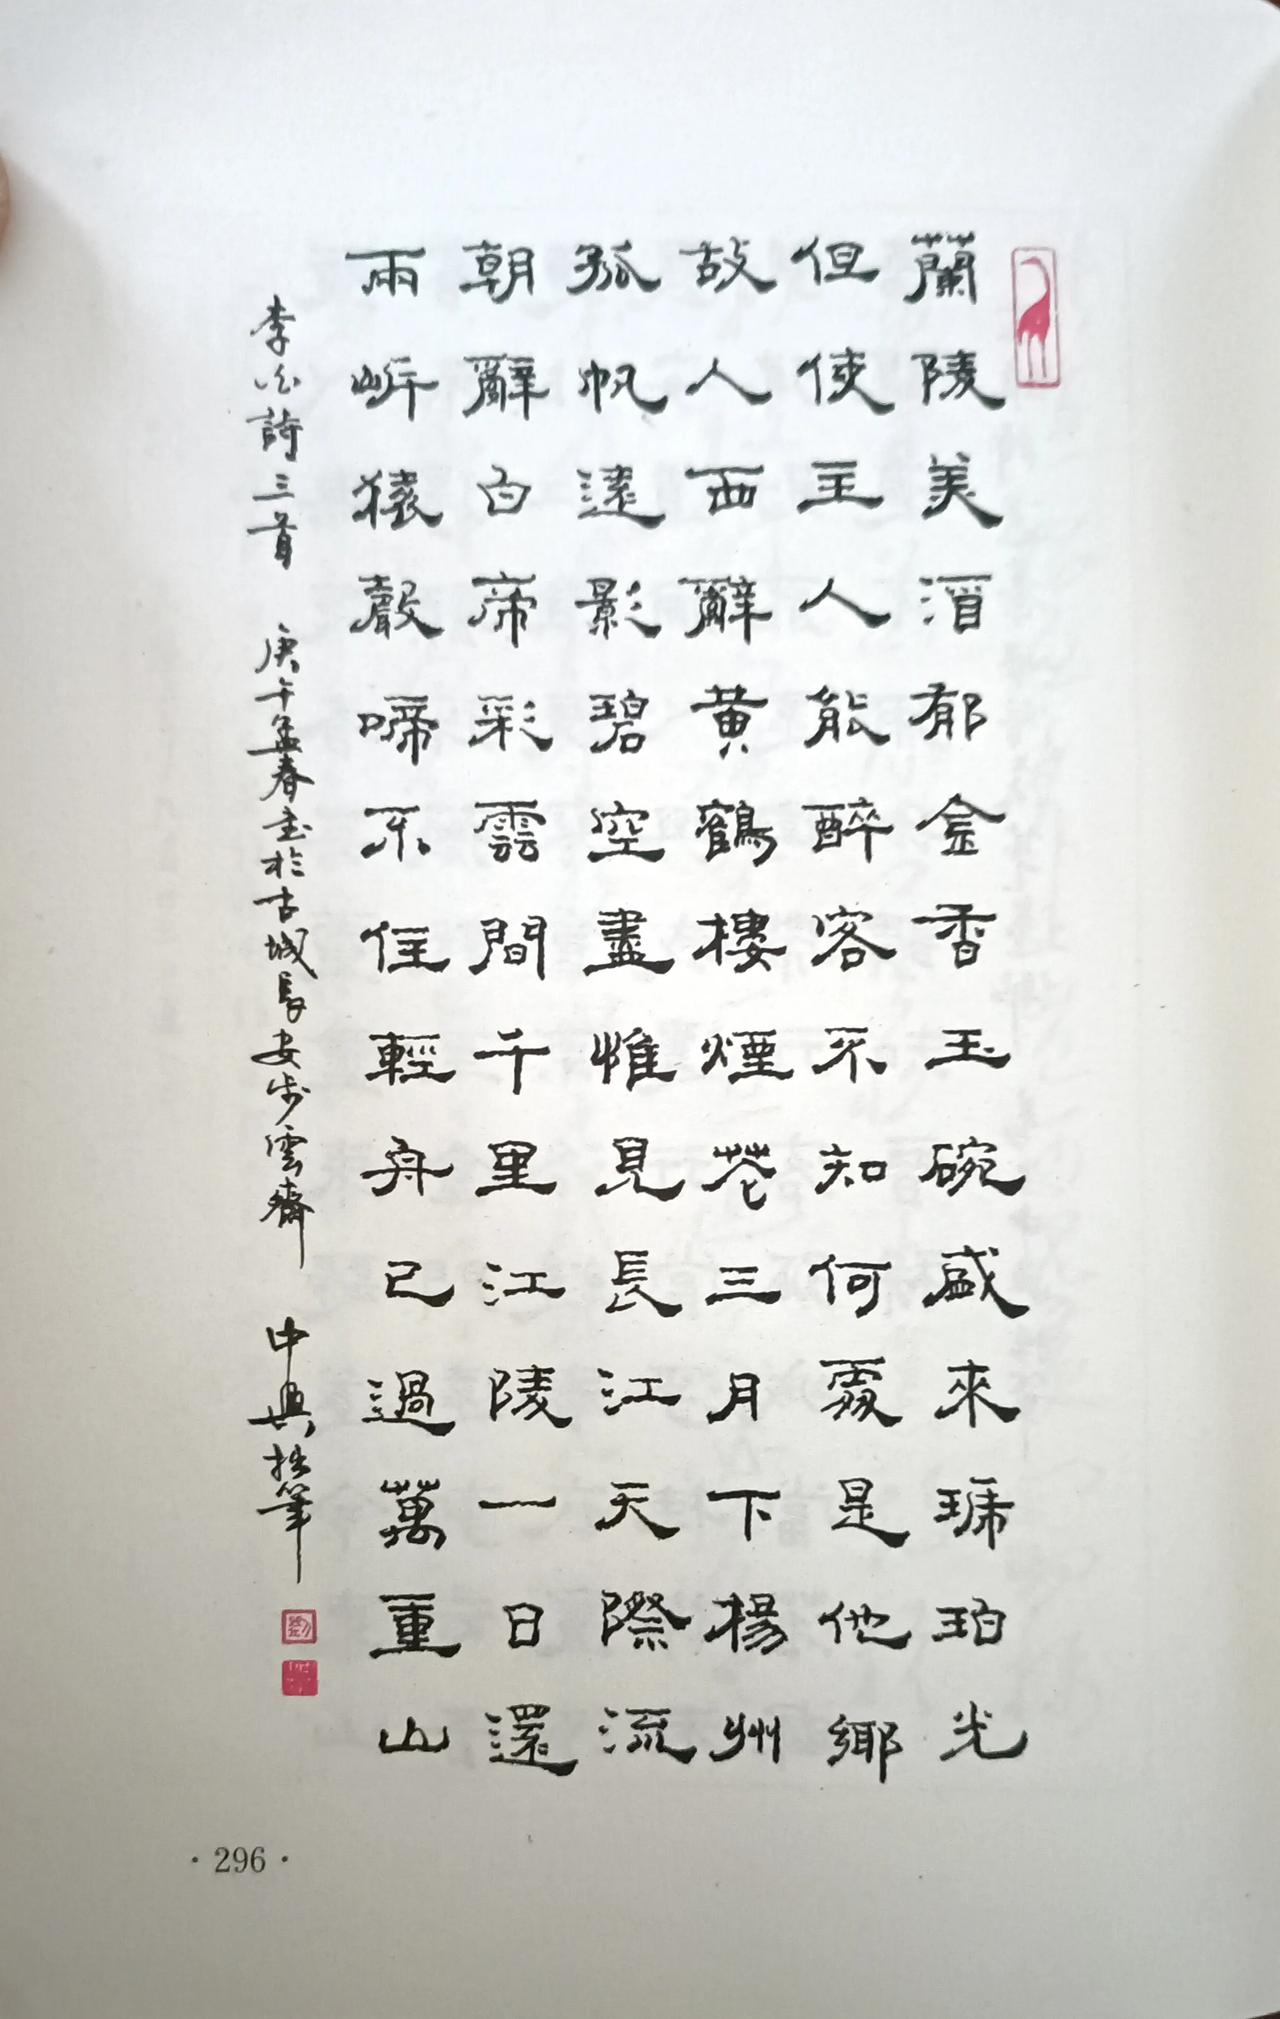 蘭陵美酒郁金香玉碗盛來琥珀光
但使主人能醉客不知何處是他鄉
故人西辭黃鶴樓煙花三月下楊州
孤帆遠影碧空盡惟見長江天際流
朝辭白帝彩雲間千里江陵一日還
兩岍猿聲啼不住輕舟已過萬重山
李白詩三首 庚午孟春書於古城長安步雲齋 中興拙筆
劉
·296·